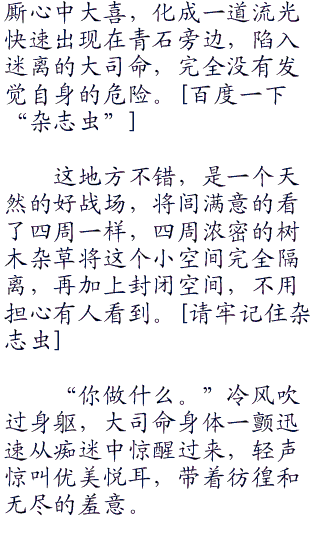 厮心中大喜，化成一道流光
快速出现在青石旁边，陷入
迷离的大司命，完全没有发
觉自身的危险。[百度一下
“杂志虫”]
这地方不错，是一个天
然的好战场，将闾满意的看
了四周一样，四周浓密的树
木杂草将这个小空间完全隔
离，再加上封闭空间，不用
担心有人看到。[请牢记住杂
志虫]
“你做什么。”冷风吹
过身躯，大司命身体一颤迅
速从痴迷中惊醒过来，轻声
惊叫优美悦耳，带着彷徨和
无尽的羞意。